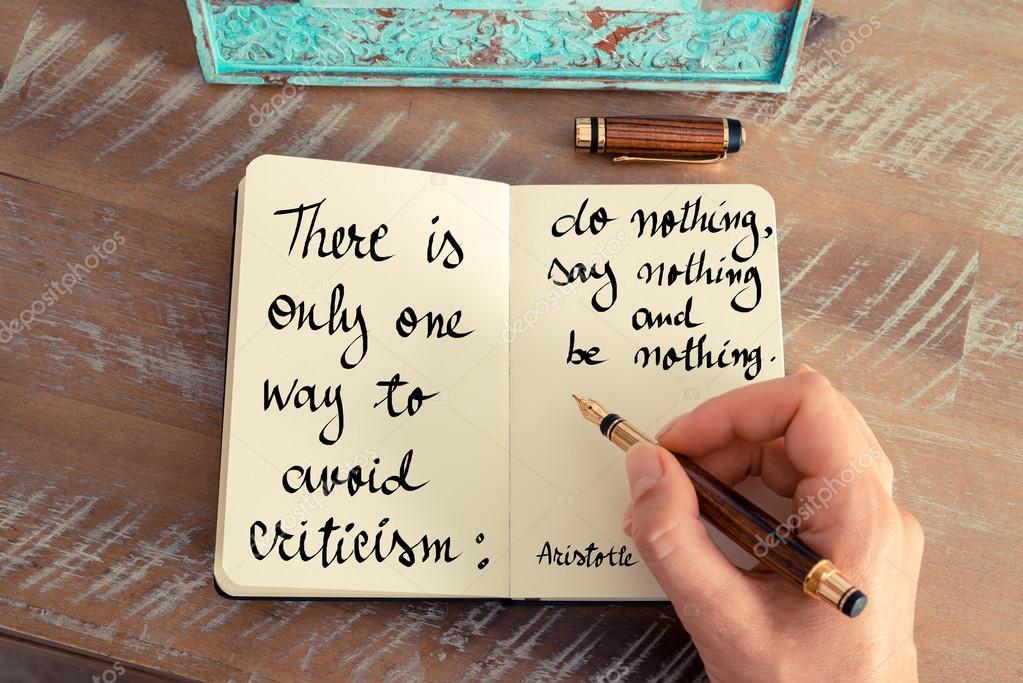 There is
only one
way to
avoid
criticism:
do nothing,
say nothing
and
be nothing.
Aristotle
depositphotos